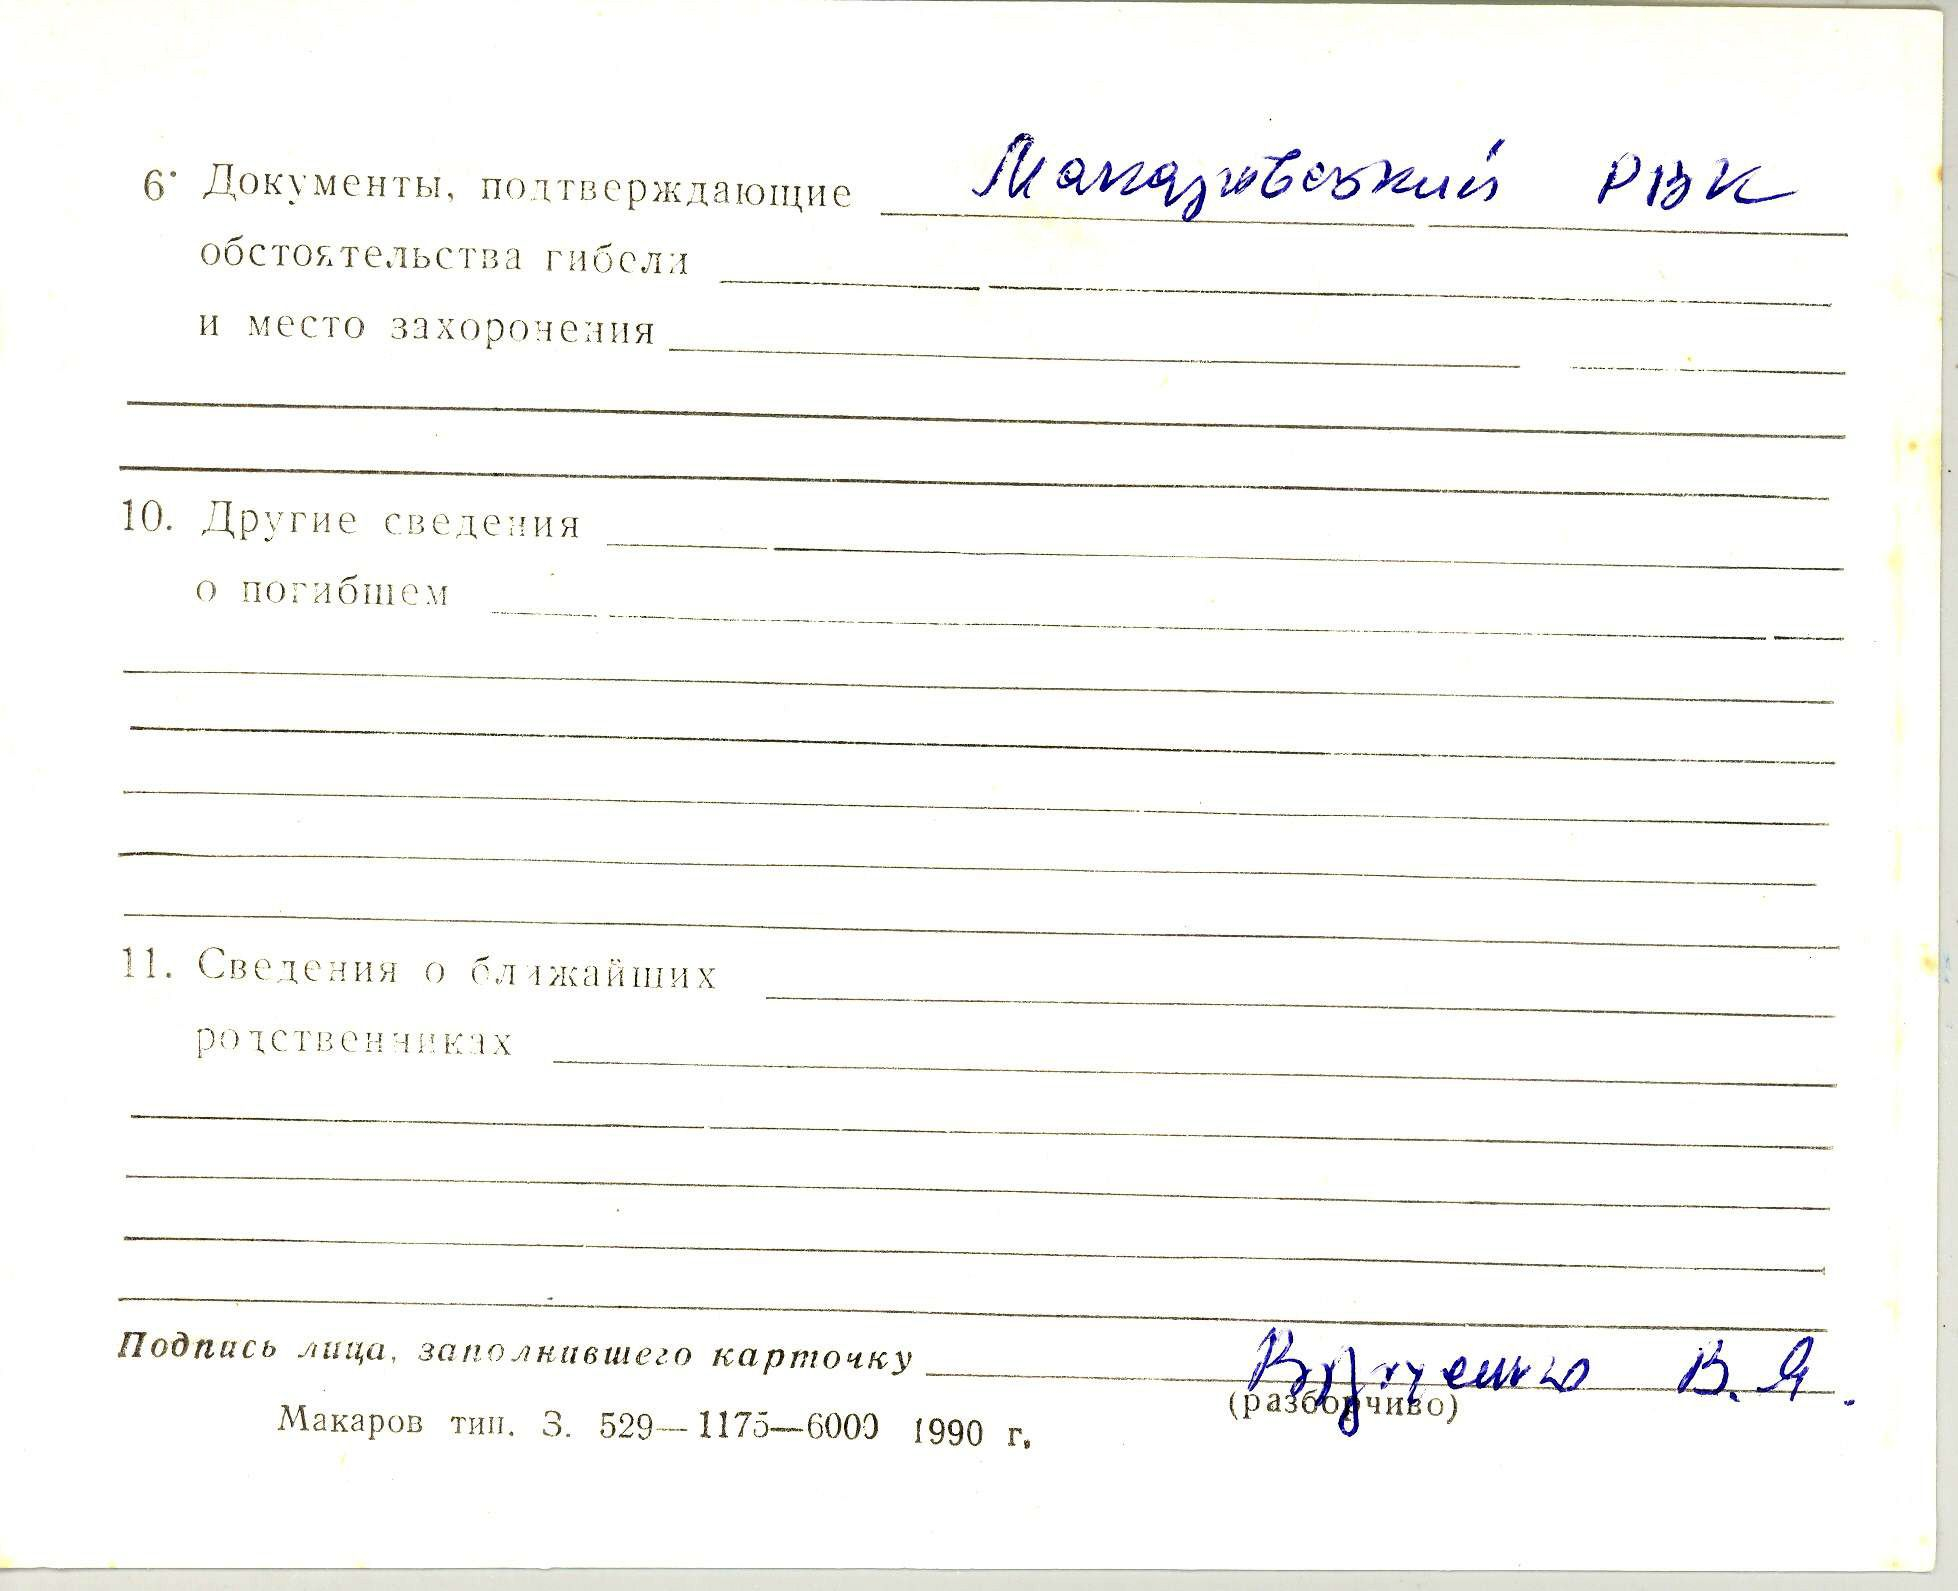 6· Документы, подтверждающие Макаровський РВК
обстоятельства гибели
и место захоронения
10. Другие сведения
о погибшем
11. Сведения о ближайших
родственниках
Подпись лица, заполнившего карточку В. Я.
(разборчиво)
Макаров тип. З. 529—1175—6000 1990 г.